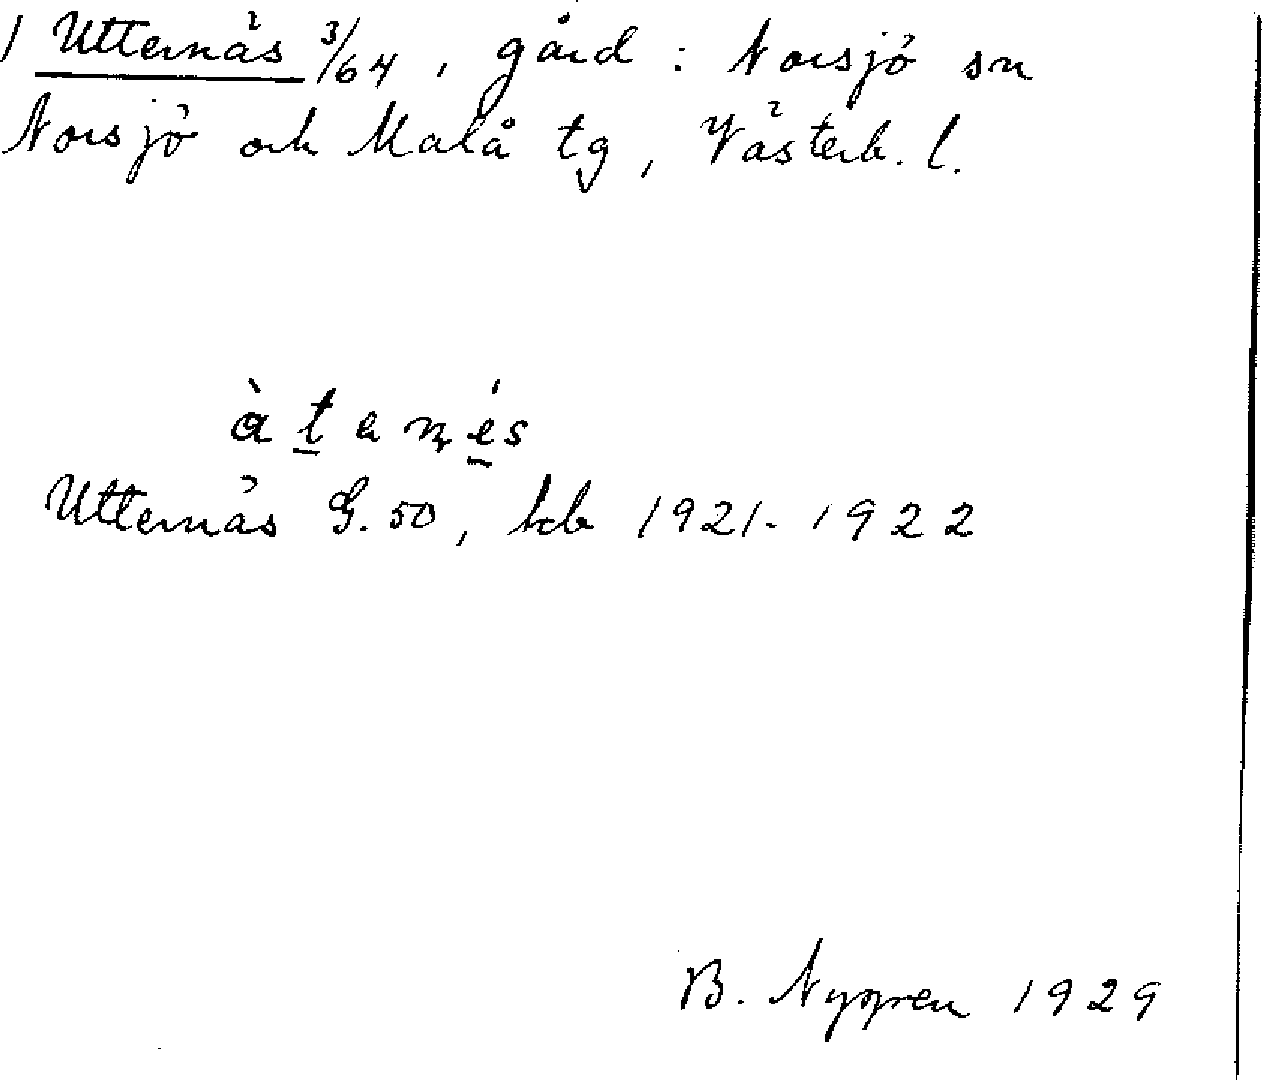 1 Utternäs 3/64, gård : Norsjö sn
Norsjö och Malå tg, Västerb. l.
Utternäs G. 50, kb 1921-1922
B. Nygren 1929